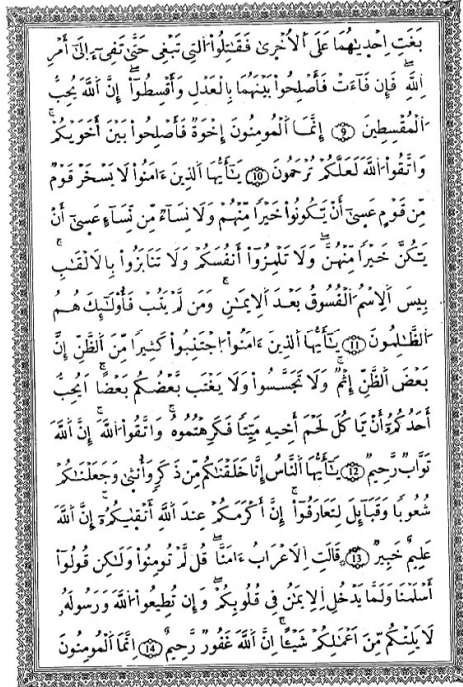 بَغَتِ اِحْدٜيٰهُمَا عَلَي اَلُاخْر۪يٰ فَقَٰتِلُواْ اُ۬لتِے تَبْغِے حَتَّيٰ تَفِےٓءَ ا۪لَيٰٓ أَمْرِ
اِ۬للَّهِۖ فَإِن فَآءَتْ فَأَصْلِحُواْ بَيْنَهُمَا بِالْعَدْلِ وَأَقْسِطُوٓاْۖ إِنَّ اَ۬للَّهَ يُحِبُّ
اُ۬لْمُقْسِطِينَ 9 إِنَّمَا اَ۬لْمُومِنُونَ إِخْوَةٞ فَأَصْلِحُواْ بَيْنَ أَخَوَيْكُمْۖ
وَاتَّقُواْ اُ۬للَّهَ لَعَلَّكُمْ تُرْحَمُونَ 10 يَٰٓأَيُّهَا اَ۬لذِينَ ءَامَنُواْ لَا يَسْخَرْ قَوْمٞ
مِّن قَوْمٍ عَس۪يٰٓ أَنْ يَّكُونُواْ خَيْراٗ مِّنْهُمْ وَلَا نِسَآءٞ مِّن نِّسَآءٍ عَس۪يٰٓ أَنْ
يَّكُنَّ خَيْراٗ مِّنْهُنَّۖ وَلَا تَلْمِزُوٓاْ أَنفُسَكُمْ وَلَا تَنَابَزُواْ بِالَالْقَٰبِۖ
بِيسَ اَ۬لِاسْمُ اُ۬لْفُسُوقُ بَعْدَ اَ۬لِايمَٰنِۖ وَمَن لَّمْ يَتُبْ فَأُوْلَٰٓئِكَ هُمُ
اُ۬لظَّٰلِمُونَ 11 يَٰٓأَيُّهَا اَ۬لذِينَ ءَامَنُواْ اُ۪جْتَنِبُواْ كَثِيراٗ مِّنَ اَ۬لظَّنِّ إِنَّ
بَعْضَ اَ۬لظَّنِّ إِثْمٞۖ وَلَا تَجَسَّسُواْ وَلَا يَغْتَب بَّعْضُكُم بَعْضاًۖ اَيُحِبُّ
أَحَدُكُمُۥٓ أَنْ يَّاكُلَ لَحْمَ أَخِيهِ مَيِّتاٗ فَكَرِهْتُمُوهُۖ وَاتَّقُواْ اُ۬للَّهَۖ إِنَّ اَ۬للَّهَ
تَوَّابٞ رَّحِيمٞۖ 12 يَٰٓأَيُّهَا اَ۬لنَّاسُ إِنَّا خَلَقْنَٰكُم مِّن ذَكَرٖ وَأُنث۪يٰ وَجَعَلْنَٰكُمْ
شُعُوباٗ وَقَبَآئِلَ لِتَعَارَفُوٓاْۖ إِنَّ أَكْرَمَكُمْ عِندَ اَ۬للَّهِ أَتْق۪يٰكُمُۥٓۖ إِنَّ اَ۬للَّهَ
عَلِيمٌ خَبِيرٞۖ 13 قَالَتِ اِ۬لَاعْرَابُ ءَامَنَّاۖ قُل لَّمْ تُومِنُواْ وَلَٰكِن قُولُوٓاْ
أَسْلَمْنَا وَلَمَّا يَدْخُلِ اِ۬لِايمَٰنُ فِے قُلُوبِكُمْۖ وَإِن تُطِيعُواْ اُ۬للَّهَ وَرَسُولَهُۥ
لَا يَلِتْكُم مِّنَ اَعْمَٰلِكُمْ شَيْـٔاًۖ اِنَّ اَ۬للَّهَ غَفُورٞ رَّحِيمٌۖ 14 اِنَّمَا اَ۬لْمُومِنُونَ